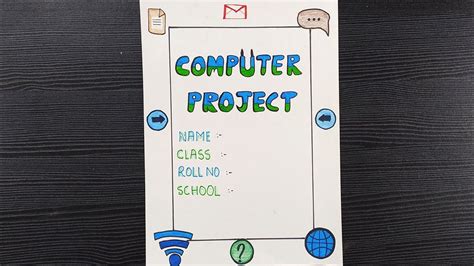 COMPUTER
PROJECT
NAME :-
CLASS :-
ROLL NO :-
SCHOOL :-
?